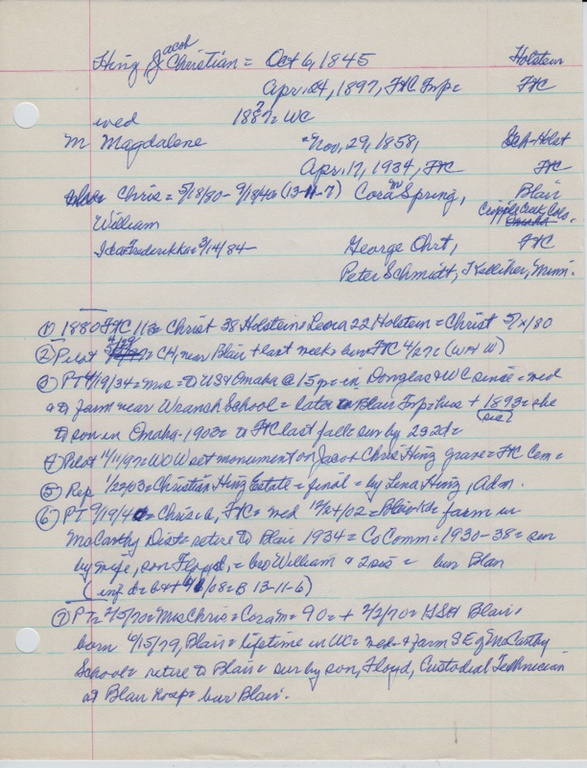 Hing, Jacob Christian = Oct 6, 1845 Holstein
Apr. 24, 1897, FtC Twp = FtC
wed 188?= WC
M Magdalene =Nov, 29, 1858, Sch-Holst
Apr. 17, 1934, FtC FtC
Chris = 5/18/80 - 9/18/40 (13-11-7) Cora M Spring, Blair
William Cripple Creek, Colo.
Ida Frederikka = 3/14/84 - George Ohrt, FtC
Peter Schmidt, Kelliher, Minn.
① 1880 FtC 113= Christ 38 Holstein= Leora 22 Holstein = Christ 5/x/80
② Pilot = CH, near Blair + last week= bur FtC 4/27= (WH W)
③ PT 4/19/34= Mrs = to US & Omaha @ 15 yr= in Douglas & WC since = wed
& to farm near Wranch School = later to Blair Twp= hus + 1893= she
to son in Omaha-1903= to FtC last fall= sur by 2s2d=
④ Pilot 11/11/97= WOW set monument on Jacob Chris Hing grave = FtC Cem =
⑤ Rep 1/2/03= Christian Hing Estate = final = by Lena Hing, Adm.
⑥ PT 9/19/40= Chris, FtC= wed 12/24/02 = Blair farm in
McCarthy Dist= retire to Blair 1934 = CoComm= 1930-38= sur
by wife, son Floyd, = bro William & 2 sis = bur Blair
(inf d= b&+ /08= B 13-11-6)
⑦ PT= 2/5/70= Mrs Chris = Cora M= 90= + 2/2/70= Blair=
born 6/15/79, Blair= lifetime in WC= wed= & farm SE of McCarthy
School= retire to Blair= sur by son, Floyd, Custodial Technician
at Blair hosp= bur Blair.